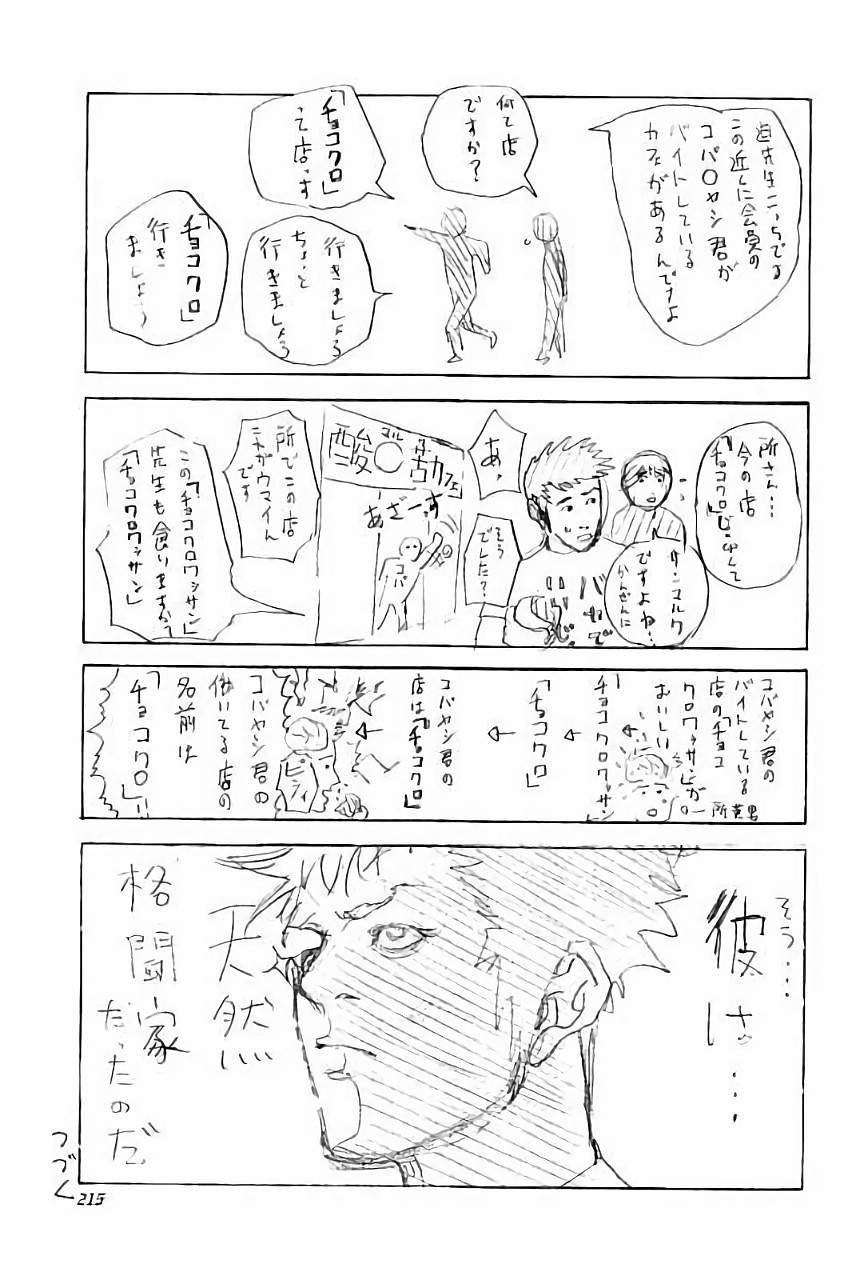 先生こっちです
この近くに会員の
コバ〇ヤシ君が
バイトしている
カフェがあるんですよ
何て店
ですか?
「チョコクロ」
って店っす
行きましょう
ちょっと
行きましょう
「チョコクロ」
行き
ましょう
所さん…
今の店
「チョコクロ」
サンマルク
ですよね…
かんぜんに
あっ
そう
でした?
カフェ
あざーす
コバ
所でこの店
これがウマイん
です
この「チョコクロワッサン」
先生も食いますか?
「チョコクロワッサン」
コバヤシ君の
バイトしている
店の「チョコ
クロワッサン」が
おいしい
所英男
←
「チョコクロワッサン」
←
「チョコクロ」
←
コバヤシ君の
店は「チョコクロ」
←
ピシィ
コバヤシ君の
働いてる店の
名前は
「チョコクロ」!!
そう…
彼は…
天然
格闘家
だったのだ
つづく
215